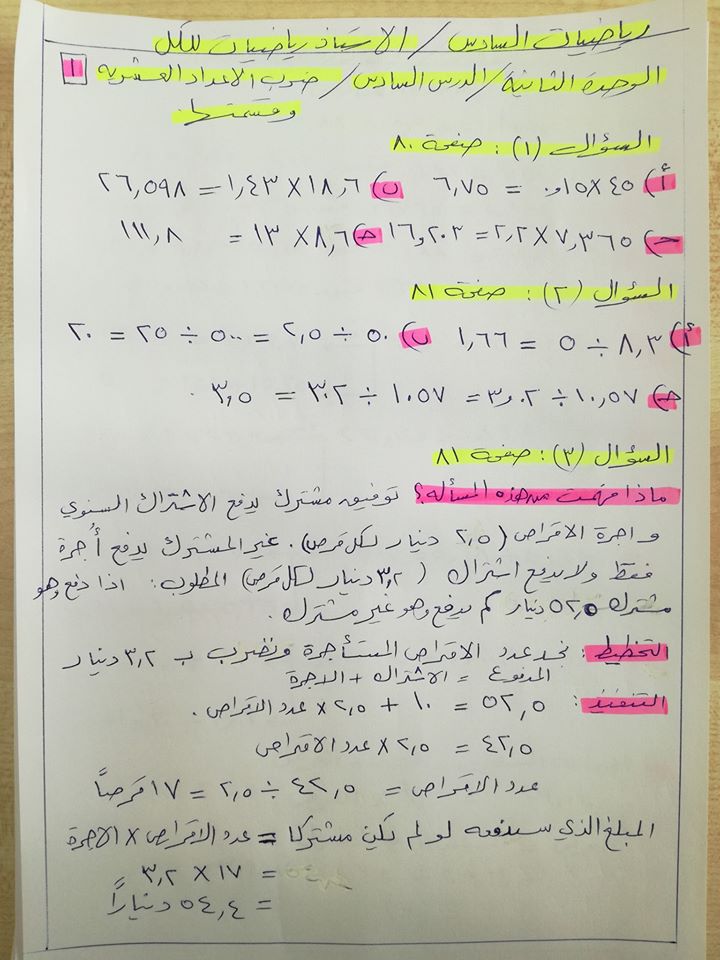 رياضيات السادس / الاستاذ رياضيات للكل
الوحدة الثانية / الدرس السادس / ضرب الاعداد العشرية ١
وقسمتها.
السؤال (١): صفحة ٨٠
أ) ٤٥ × ٠,١٥ = ٦,٧٥ ب) ١٨,٦ × ١,٤٣ = ٢٦,٥٩٨
ج) ٧,٣٦٥ × ٢,٢ = ١٦,٢٠٣ د) ٨,٦ × ١٣ = ١١١,٨
السؤال (٢): صفحة ٨١
أ) ٨,٣ ÷ ٥ = ١,٦٦ ب) ٥٠ ÷ ٢,٥ = ٥٠٠ ÷ ٢٥ = ٢٠
ج) ١٠,٥٧ ÷ ٣,٠٢ = ١٠٥٧ ÷ ٣٠٢ = ٣,٥
السؤال (٣): صفحة ٨١
ماذا فهمت من هذه المسألة؟ توفيق مشترك يدفع الاشتراك السنوي
واجرة الاقراص (٢,٥ دينار لكل قرص). غير المشترك يدفع أُجرة
فقط ولا يدفع اشتراك (٣,٢ دينار لكل قرص) المطلوب: اذا دفع وهو
مشترك ٥٢,٥ دينار كم يدفع وهو غير مشترك.
التخطيط: نجد عدد الاقراص المستأجرة ونضرب ب ٣,٢ دينار
المدفوع = الاشتراك + الاجرة
التنفيذ: ٥٢,٥ = ١٠ + ٢,٥ × عدد الاقراص.
٤٢,٥ = ٢,٥ × عدد الاقراص
عدد الاقراص = ٤٢,٥ ÷ ٢,٥ = ١٧ قرصاً
المبلغ الذي سيدفعه لو لم يكن مشتركا = عدد الاقراص × الاجرة
= ١٧ × ٣,٢
= ٥٤,٤ ديناراً